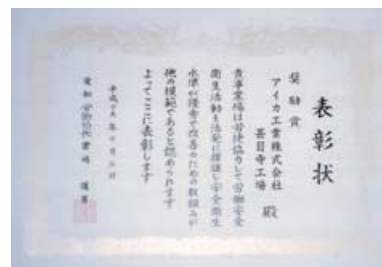 表彰状
奨励賞
アイカ工業株式会社
甚目寺工場 殿
貴事業場は労使協力して労働安全
衛生活動を活発に推進し安全衛生
水準が優秀で改善のための取組みが
他の模範であると認められます
よってここに表彰します
平成十五年十月二日
愛知労働局長